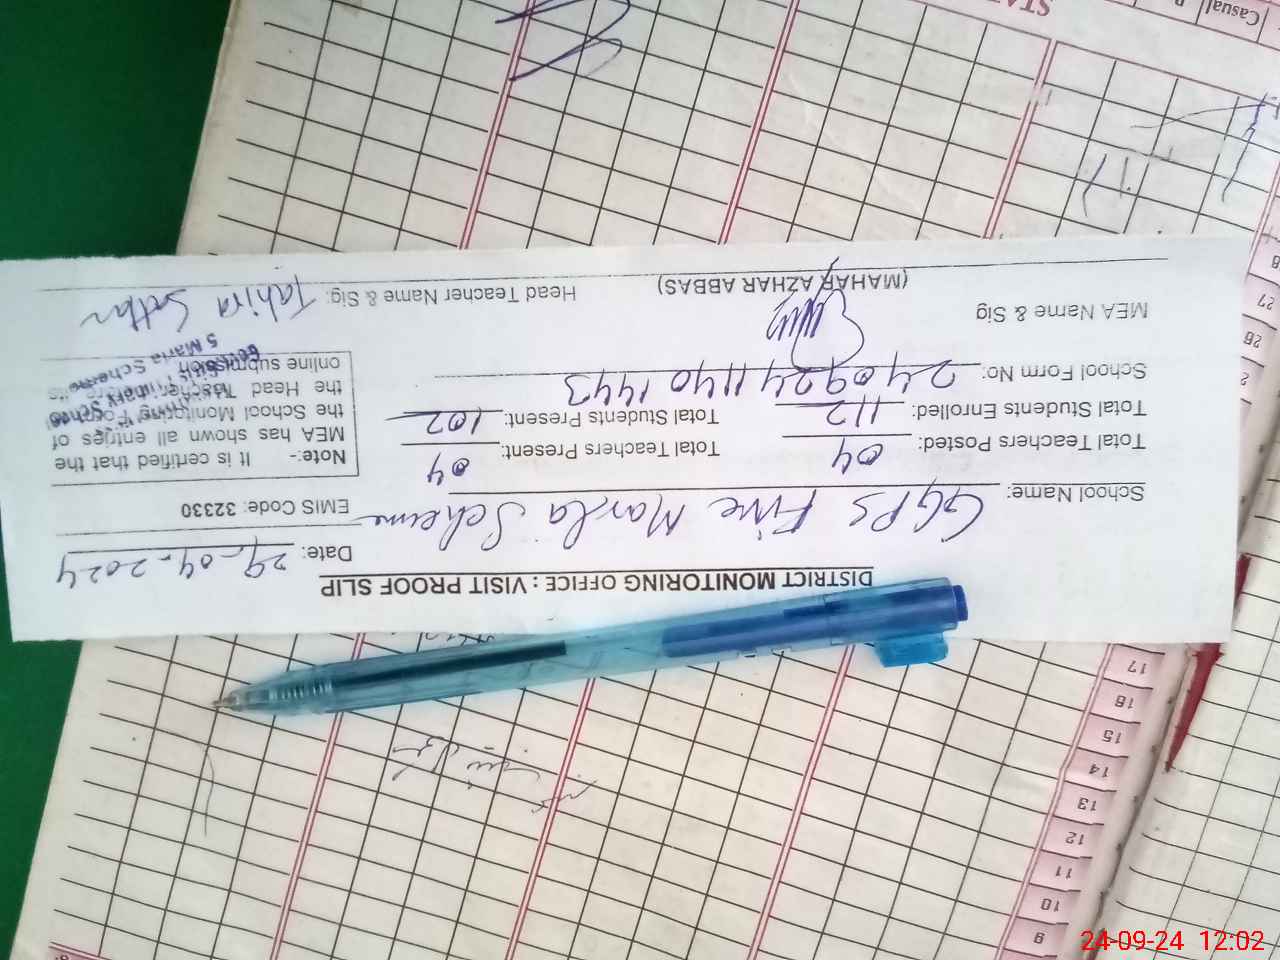 DISTRICT MONITORING OFFICE : VISIT PROOF SLIP
Date: 24-09-2024
School Name: GGPS Five Marla Scheme
EMIS Code: 32330
Total Teachers Posted: 04
Total Teachers Present: 04
Total Students Enrolled: 112
Total Students Present: 102
School Form No: 24092411401443
Note:- It is certified that the
MEA has shown all entries of
the School Monitoring
the Head Teacher
online submission
5 Marla Scheme
MEA Name & Sig
(MAHAR AZHAR ABBAS)
Head Teacher Name & Sig: Tahira Sattar
Casual
27
26
17
16
15
14
13
12
11
10
9
24-09-24 12:02